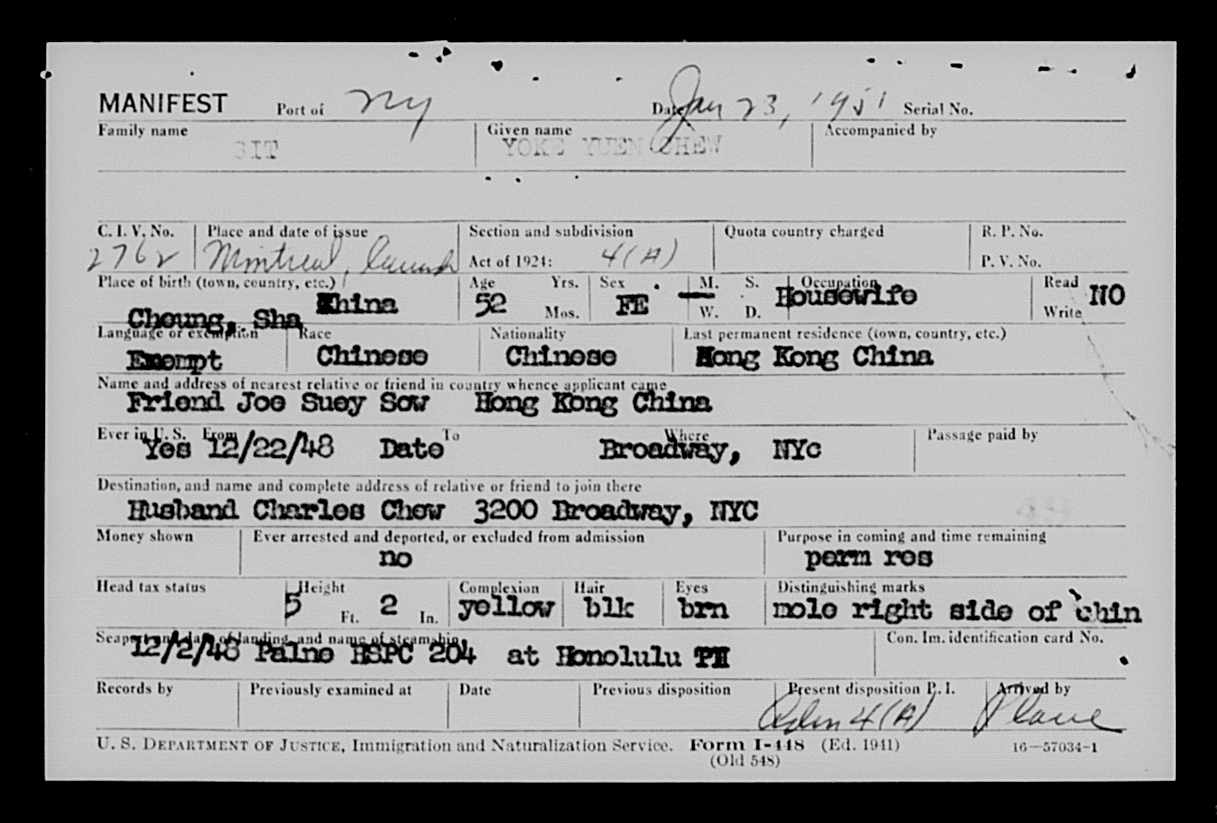 MANIFEST Port of NY Date Jan 23, 1951 Serial No.
Family name Given name Accompanied by
SIT YOKE YUEN CHEW
C. I. V. No. Place and date of issue Section and subdivision Quota country charged R. P. No.
2762 Montreal, Canada Act of 1924: 4(A) P. V. No.
Place of birth (town, country, etc.) Age Yrs. Sex M. S. Occupation Read
Cheung, Sha China 52 Mos. FE W. D. Housewife Write NO
Language or exemption Race Nationality Last permanent residence (town, country, etc.)
Exempt Chinese Chinese Hong Kong China
Name and address of nearest relative or friend in country whence applicant came
Friend Joe Suey Sow Hong Kong China
Ever in U. S. From To Where Passage paid by
Yes 12/22/48 Date Broadway, NYc
Destination, and name and complete address of relative or friend to join there
Husband Charles Chew 3200 Broadway, NYC
Money shown Ever arrested and deported, or excluded from admission Purpose in coming and time remaining
no perm res
Head tax status Height Complexion Hair Eyes Distinguishing marks
5 Ft. 2 In. yellow blk brn mole right side of chin
Seaport and date of landing, and name of steamship Con. Im. identification card No.
12/2/48 Palne HSPC 204 at Honolulu TH
Records by Previously examined at Date Previous disposition Present disposition P. I. Arrived by
4(A) Plane
U. S. DEPARTMENT OF JUSTICE, Immigration and Naturalization Service. Form I-448 (Ed. 1941) 16—57034-1
(Old 548)